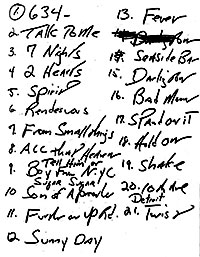 ① 634-
2 Talk To Me
3. 7 Nights
4 2 Hearts
5. Spirit
6 Rendezvous
7 From Small things
8. ACC that Heaven
Tell Him or
9 Boy From N.Y.C
Sugar Sugar
10 Son of A Preacher
11. Further on up Rd.
12 Sunny Day
13. Fever
14
15. Seaside Bar
15. Darlington
16. Bad Moon
17. Spanish
18. Hold on
19. Shake
20. 10th Ave
Detroit
21. Twist